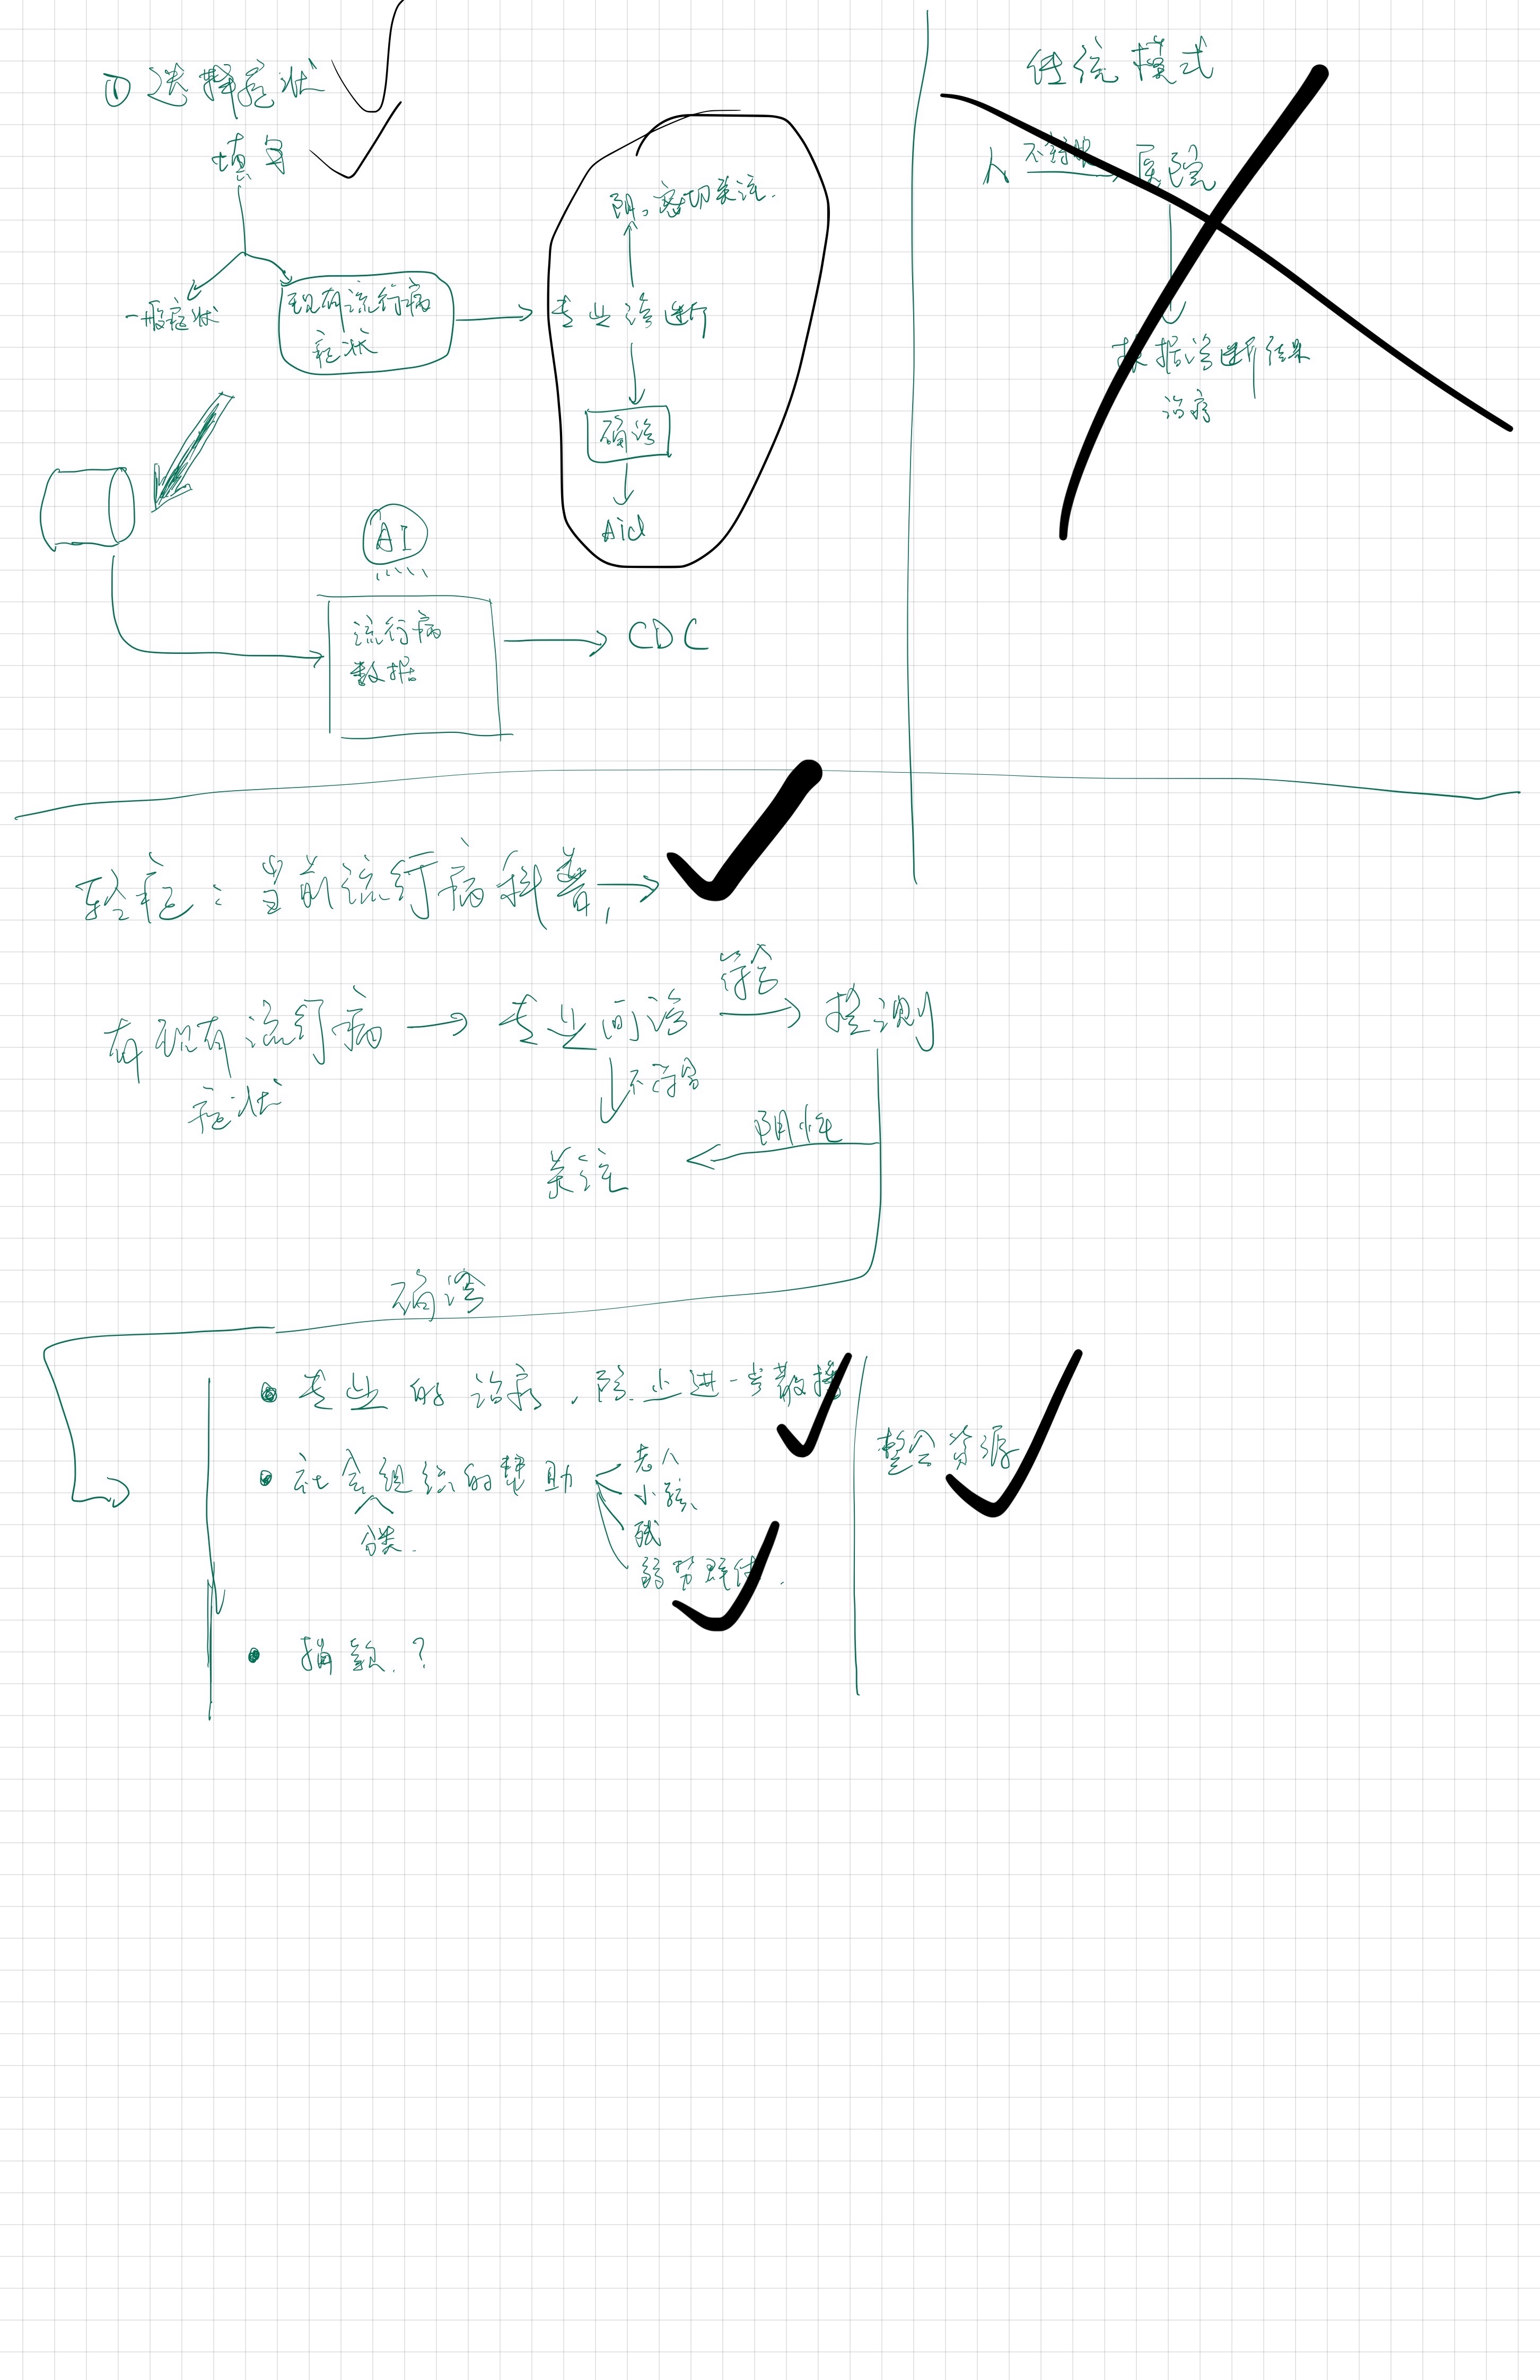 ① 选择症状
填写
一般症状
现有流行病
症状
阴。密切关注.
专业诊断
确诊
Aid
AI
流行病
数据
CDC
传统模式
人
医院
根据诊断结果
治疗
轻症：当前流行病科普,
有现有流行病
症状
专业问诊
符合
检测
不符合
阴性
关注
确诊
专业的治疗，防止进一步散播
社会组织的帮助
分类.
老人
小孩、
残
弱势群体.
捐款.？
整合资源